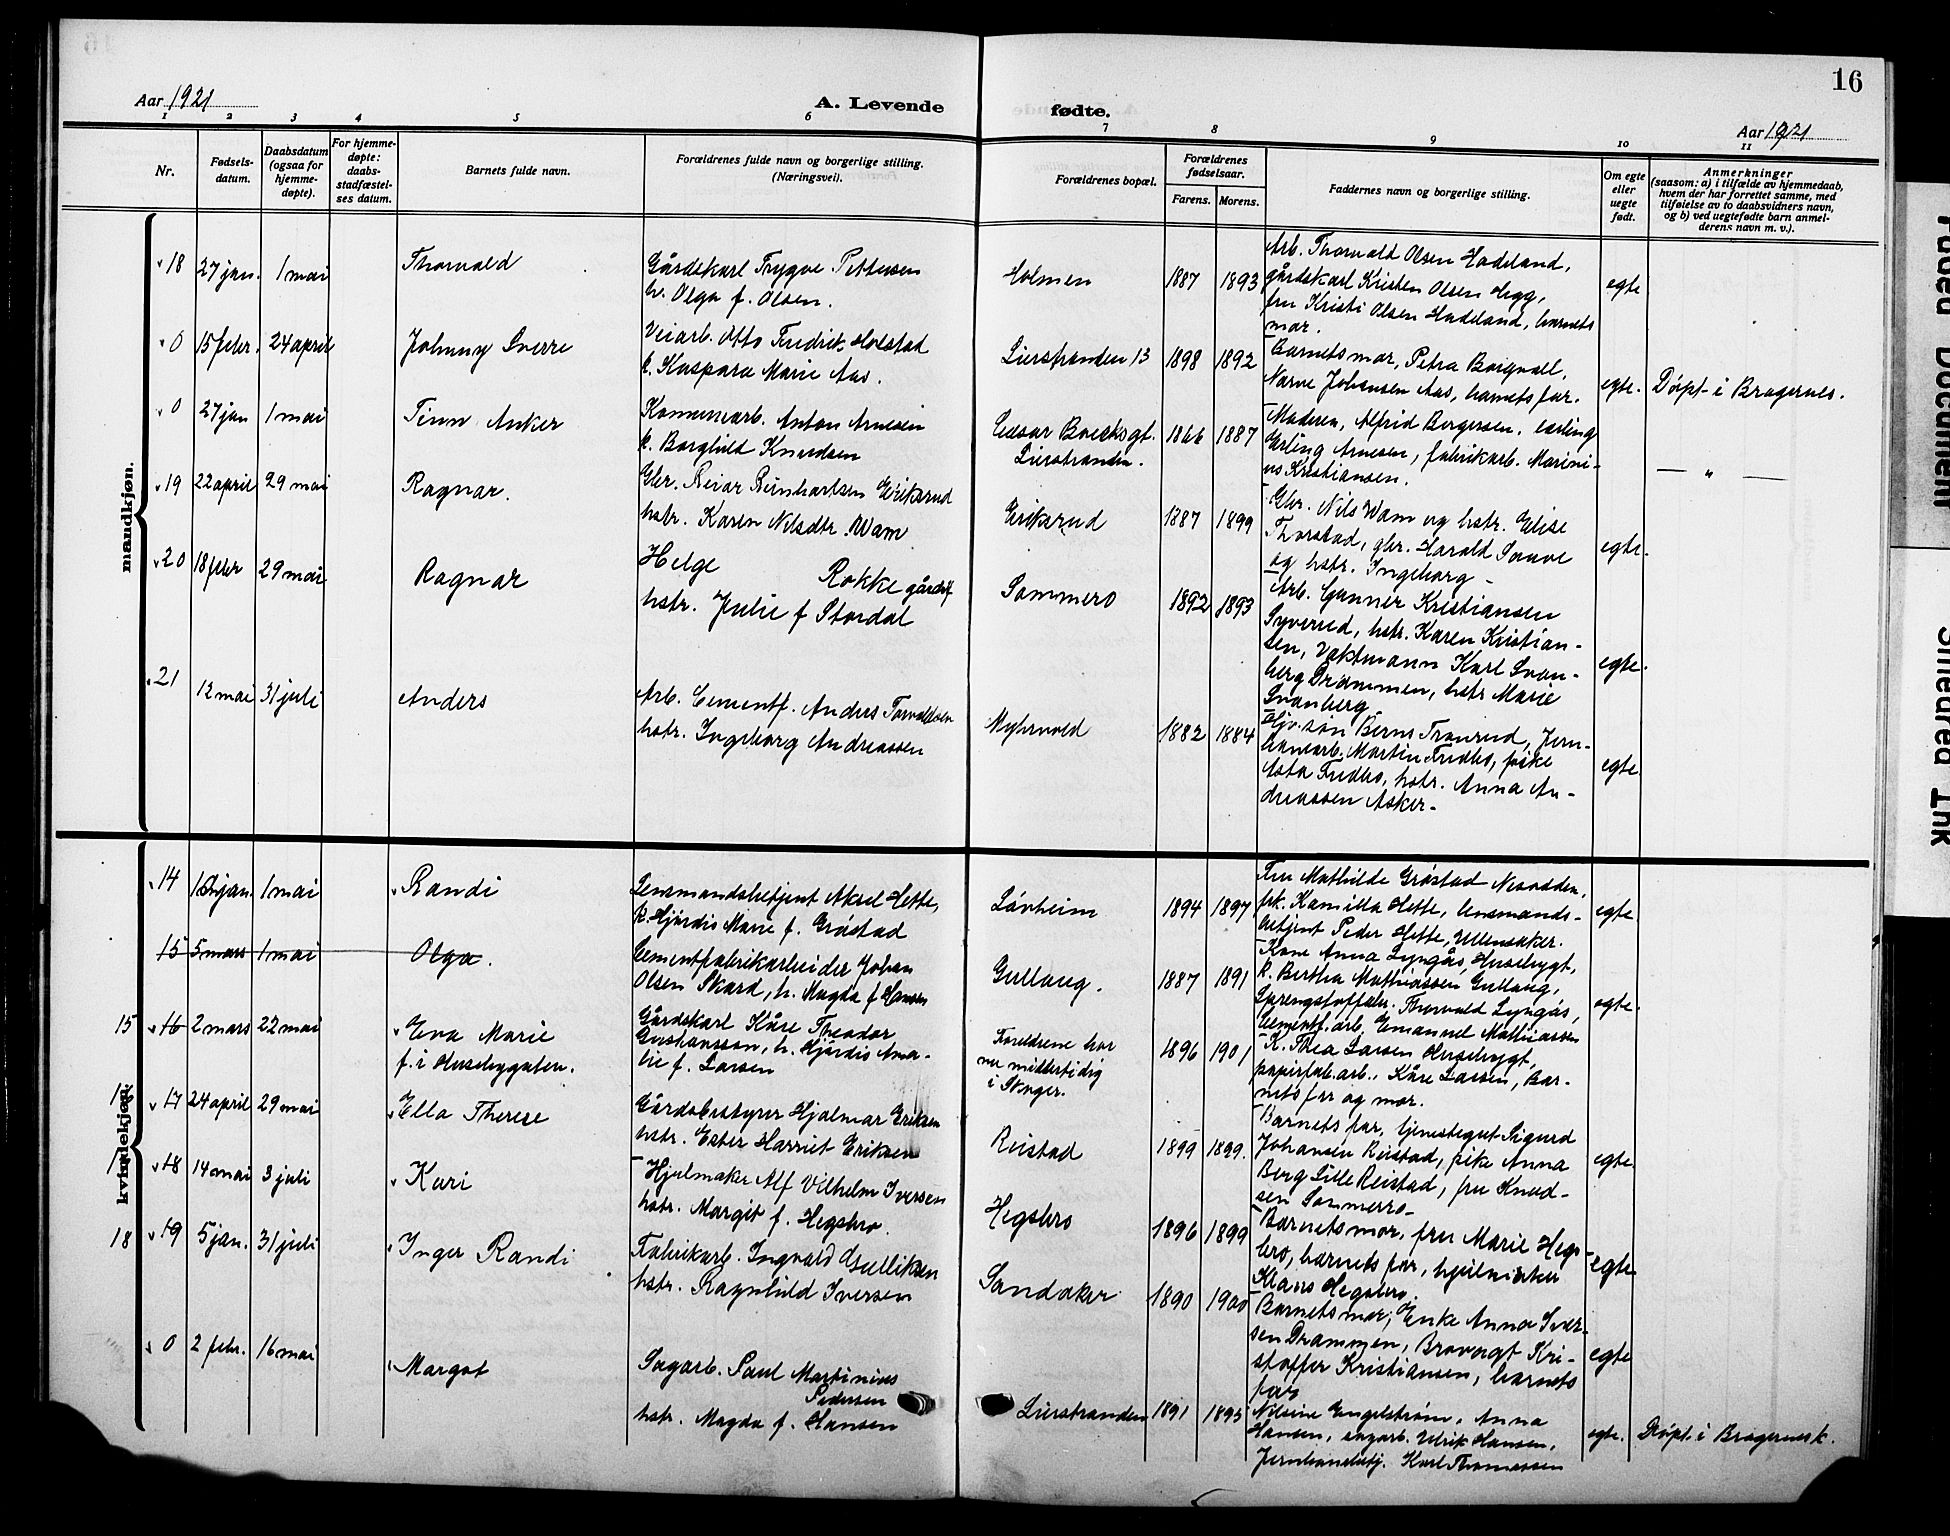 16
Aar 1921
A. Levende
fødte.
Aar 1921
1 2 3 4 5 6 7 8 9 10 11
Nr.
Fødsels-
datum.
Daabsdatum
(ogsaa for
hjemme-
døpte).
For hjemme-
døpte:
daabs-
stadfæstel-
ses datum.
Barnets fulde navn.
Forældrenes fulde navn og borgerlige stilling.
(Næringsvei).
Forældrenes bopæl.
Forældrenes
fødselsaar.
Farens. Morens.
Faddernes navn og borgerlige stilling.
Om egte
eller
uegte
født.
Anmerkninger
(saasom: a) i tilfælde av hjemmedaab,
hvem der har forrettet samme, med
tilføielse av to daabsvidners navn,
og b) ved uegtefødte barn anmel-
derens navn m. v.).
mandkjøn.
18 27 jan. 1 mai
Thorvald
Gårdskarl Trygve Pettersen
h. Olga f. Olsen.
Holmen
1887 1893
Arb. Thorvald Olsen Hadeland,
gårdskarl Kristen Olsen Hegg,
fru Kristi Olsen Hadeland, barnets
mor.
egte
0 15 febr. 24 april
Johnny Sverre
Veiarb. Otto Fredrik Holstad
k. Kaspara Marie Aas.
Lierstranden 13
1898 1892
Barnets mor, Petra Borgvall,
Narve Johansen Aas, barnets far.
egte.
Døpt i Bragernes.
0 27 jan 1 mai
Finn Anker
Kommunearb. Anton Arnesen
k. Borghild Knudsen
Cesar Boecksgt.
Lierstranden.
1866 1887
Moderen, Alfrid Borgersen, lærling
Erling Arnesen, fabrikarb. Marini-
us Kristiansen.
— " —
19 22 april 29 mai
Ragnar.
Gbr. Reiar Reinhartsen Eriksrud
hstr. Karen Nilsdtr. Wam
Eriksrud
1887 1899
Gbr. Nils Wam og hstr. Elise
Thorstad, gbr. Harald Sauve
og hstr. Ingeborg -
egte.
20 18 febr 29 mai
Ragnar
Helge Rokke
hstr. Julie f Stordal
Sommero
1892 1893
Arb. Gunner Kristiansen
Syverud, hstr. Karen Kristian-
sen, Vaktmann Karl Svan-
berg Drammen, hstr Marie
Svanberg
egte.
21 12 mai 31 juli
Anders
Arb. Cementf. Anders Torvaldsen
hstr. Ingeborg Andreassen
Myhrvold
1882 1884
Tronrud, Jern-
banearb. Martin Fredbo, pike
Asta Fredbo, hstr. Anna An-
dreassen Asker-
egte
kvindekjøn.
14 jan. 1 mai
Randi
Lensmandsbetjent Aksel Hette,
k. Hjørdis Marie f. Grøstad
Løvheim
1894 1897
Fru Mathilde Grøstad Nesodden,
frk. Kamilla Hette, lensmands-
betjent Peder Hette, Ullensaker.
egte
15 5 mars 1 mai
Olga.
Cementfabrikarbeider Johan
Olsen Skard, h. Magda f Hansen
Gullaug.
1887 1891
Kone Anna Lyngås, Husebygt,
k. Bertha Mathiassen Gullaug,
Sprengstoffabr. Thorvald Lyngås,
Cementf. arb. Emanuel Mathiassen
egte.
15 16 2 mars 22 mai
Eva Marie
f. i Husebygaten.
Gårdskarl Kåre Theodor
h. Hjørdis Ama-
lie f. Larsen
Foreldrene bor
nu midlertidig
i
1896 1901
K. Thea Larsen Husebygt,
papirfab. arb. Kåre Larsen, Bar-
nets far og mor.
17 24 april 29 mai
Ella Therese
Gårdsbestyrer Hjalmar Eriksen
hstr. Ester Harriet Eriksen
Reistad
1899 1899.
Barnets far, tjenestegut Sigurd
Johansen Reistad, pike Anna
Berg Lille Reistad, fru Knud-
sen Sommerro-
egte
18 14 mai 3 juli
Kari
Hjulmaker Alf Vilhelm Iversen
hstr. Margit f. Hegsbro.
Hegsbro
1896 1899
Barnets mor, fru Marie Hegs-
bro, barnets far, hjulmaker
Klaus Hegsbro.
egte
18 19 5 jan. 31 juli
Inger Randi
Fabrikarb. Ingvald Gulliksen
hstr. Ragnhild Iversen
Sandaker
1890 1900
Barnets mor, Enke Anna Iver-
sen Drammen, Brovagt Kri-
stoffer Kristiansen, barnets
far
egte
0 2 febr. 16 mai
Margot
Sagarb. Paul Martinius
Pedersen
hstr. Magda f. Hansen
Lierstranden
1891 1895
Nilsine Engelstrøm, Anna
Hansen, sagarb. Ulrik Hansen,
Jernbanebetj. Karl Thomassen
egte.
Døpt i Bragernesk.
Faded Document
Smeared Ink